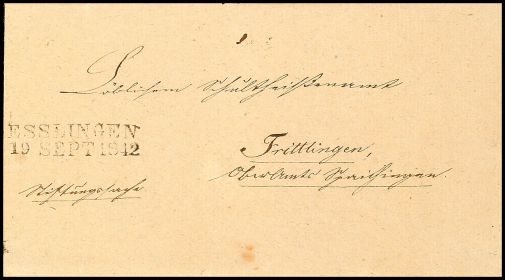 Löblichem Schultheißenamt
ESSLINGEN
19 SEPT 1842
Frittlingen,
OberAmts Spaichingen.
Stiftungssache